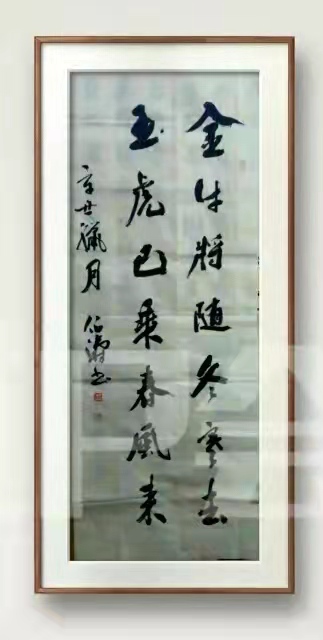 金牛將随冬寒去
玉虎已乘春风来
辛丑臘月 书